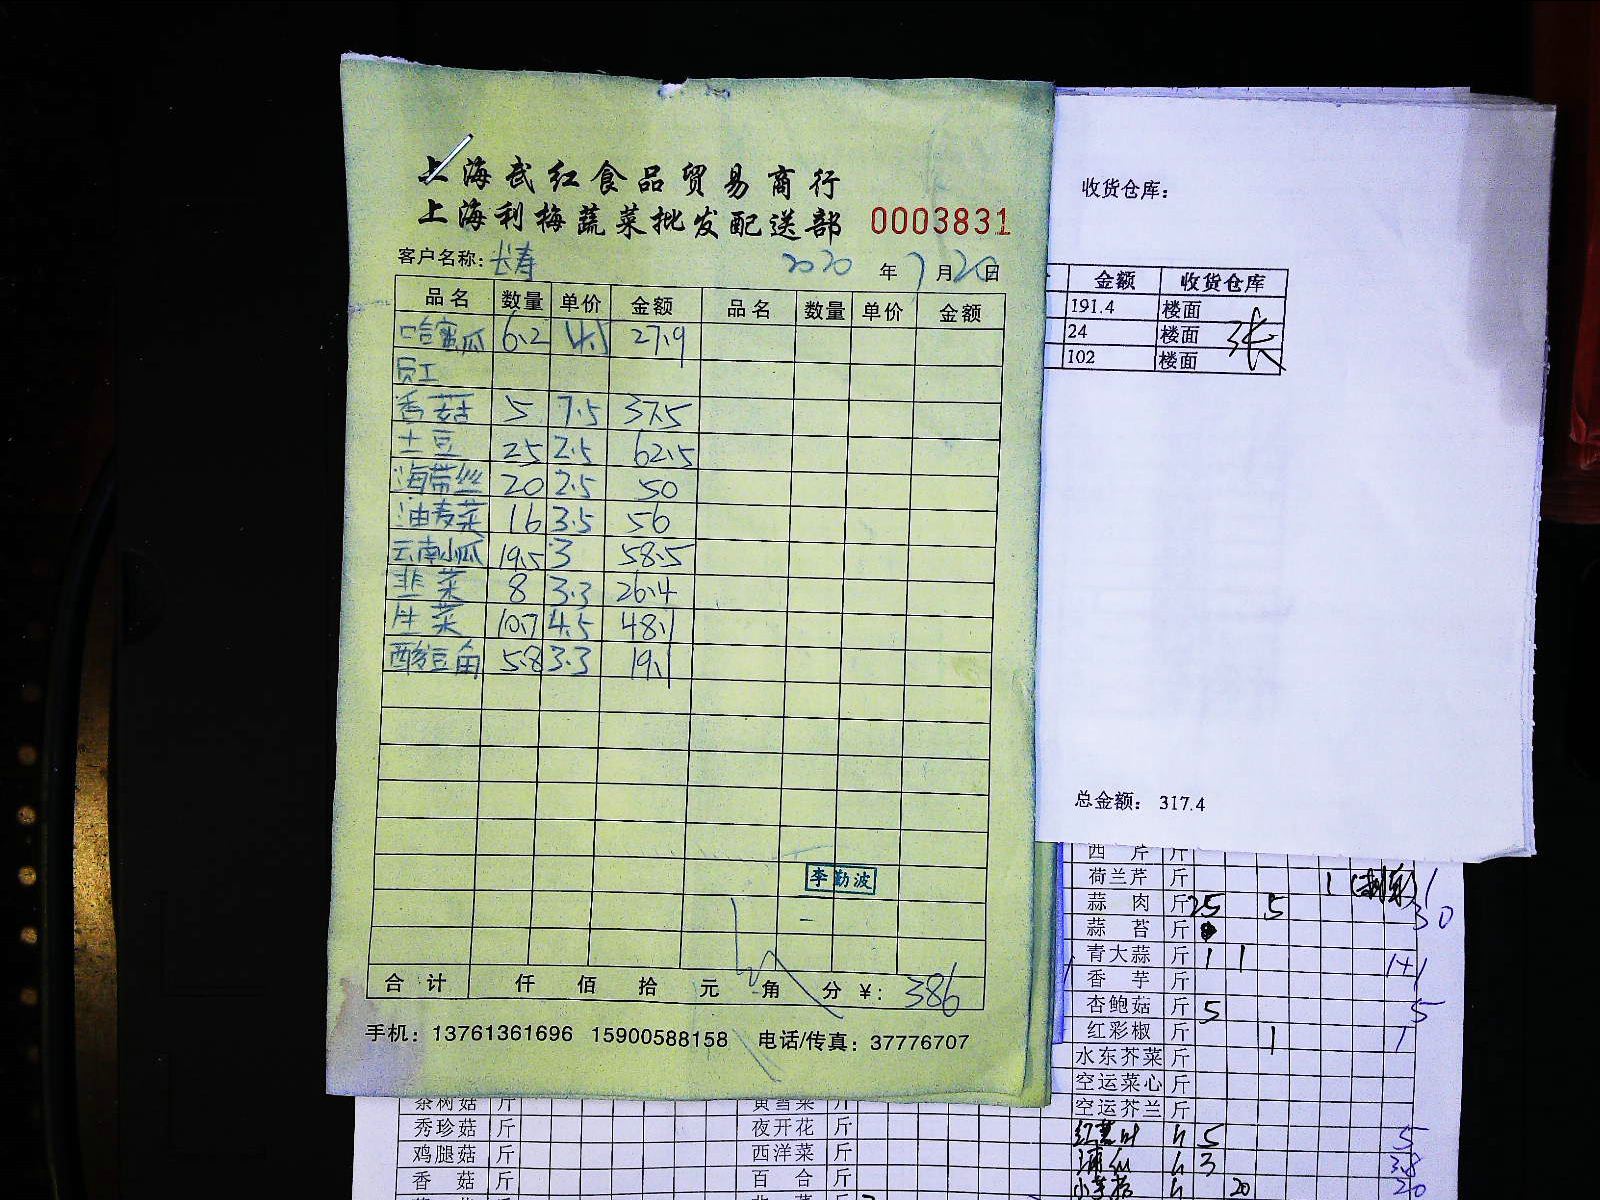 上海武红食品贸易商行
上海利梅蔬菜批发配送部 0003831
客户名称: 长寿 2020 年 7 月 20 日
品名 数量 单价 金额 品名 数量 单价 金额
哈蜜瓜 6.2 4.5 27.9
员工
香菇 5 7.5 37.5
土豆 25 2.5 62.5
海带丝 20 2.5 50
油麦菜 16 3.5 56
云南小瓜 19.5 3 58.5
韭菜 8 3.3 26.4
生菜 10.7 4.5 48.1
酸豆角 5.8 3.3 19.1
李勤波
合计 仟 佰 拾 元 角 分 ¥: 386
手机: 13761361696 15900588158 电话/传真: 37776707
收货仓库:
金额 收货仓库
191.4 楼面
24 楼面 张
102 楼面
总金额: 317.4
西芹 斤
荷兰芹 斤 1 1
蒜肉 斤 25 5 30
蒜苔 斤
青大蒜 斤 1 1 1+1
香芋 斤
杏鲍菇 斤 5 5
红彩椒 斤 1 1
水东芥菜 斤
空运菜心 斤
空运芥兰 斤
5 5
3 3.8
20 20
茶树菇 斤 黄雪菜 斤
秀珍菇 斤 夜开花 斤
鸡腿菇 斤 西洋菜 斤
香菇 斤 百合 斤